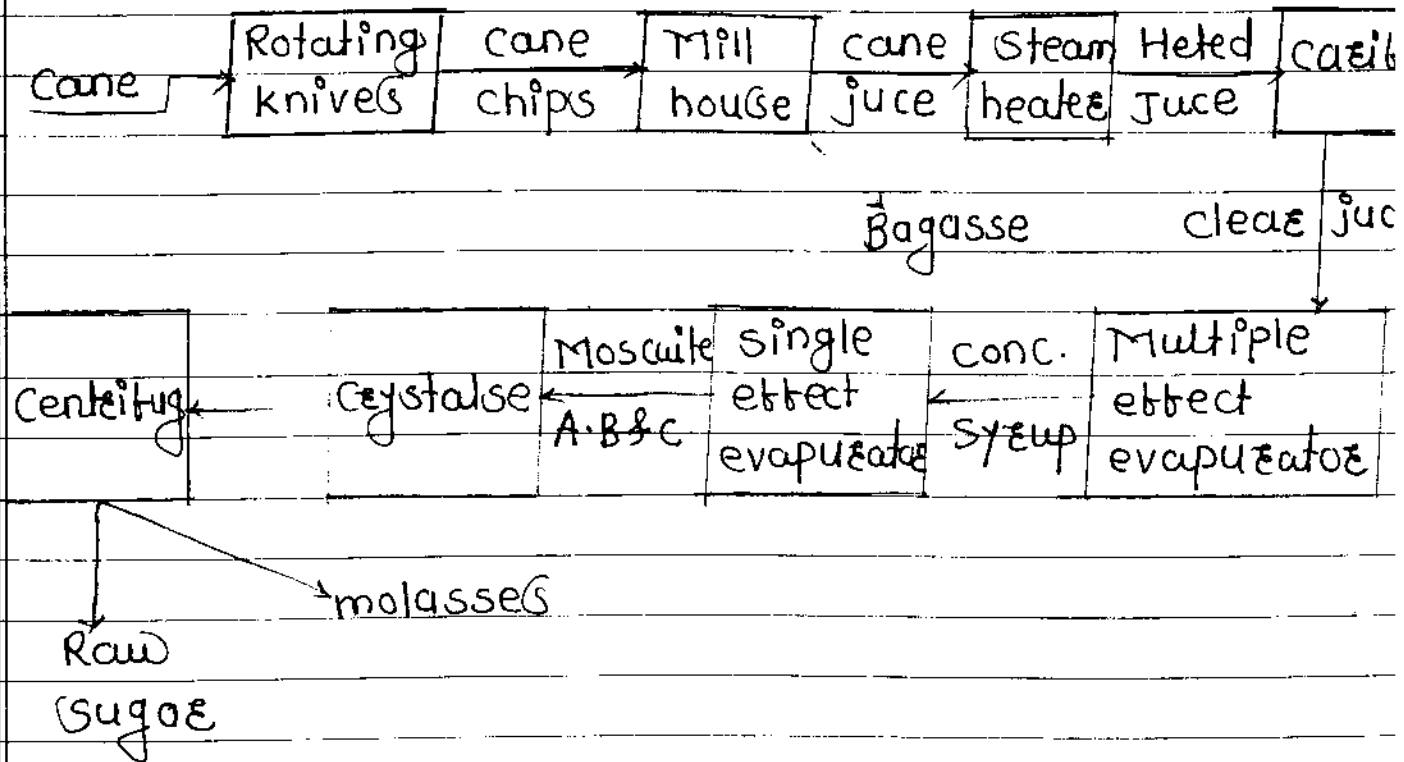 Cane
Rotating knives
cane chips
Mill house
cane juce
Steam heater
Heted Juce
Carit
Bagasse
Clear juc
Multiple effect evapurator
conc. Syrup
single effect evapurator
Moscuite A.B & C
Crystalse
Centrifug
molasses
Raw sugar